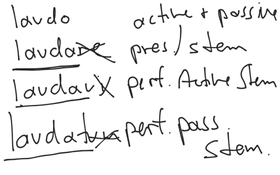 laudo active + passive
laudare pres/ stem
laudavi perf. Active Stem
laudatus perf. pass.
stem.